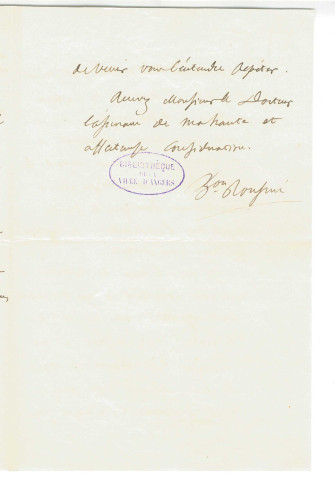 de venir vous l'entendre répéter.
Recevez Monsieur le Docteur
l'assurance de ma haute et
affectueuse considération.
BIBLIOTHÈQUE
DE LA
VILLE D'ANGERS
Bon